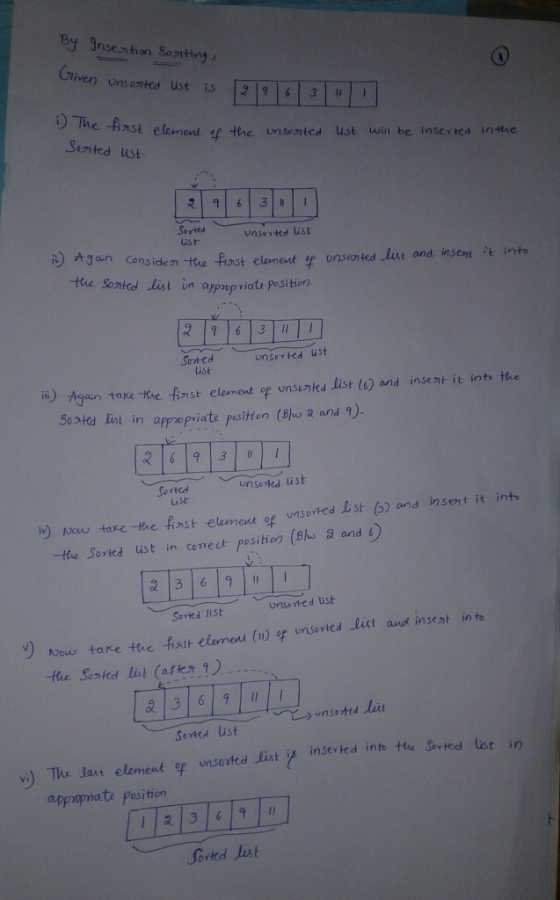 By Insertion Sorting,
1
Given unsorted list is 2 9 6 3 11 1
i) The first element of the unsorted list will be inserted in the
Sorted list.
2 9 6 3 11 1
Sorted list unsorted list
ii) Again consider the first element of unsorted list and insert it into
the sorted list in appropriate position
2 9 6 3 11 1
Sorted list unsorted list
iii) Again take the first element of unsorted list (6) and insert it into the
Sorted list in appropriate position (B/w 2 and 9).
2 6 9 3 11 1
Sorted list unsorted list
iv) Now take the first element of unsorted list (3) and insert it into
the Sorted list in correct position (B/w 2 and 6)
2 3 6 9 11 1
Sorted list unsorted list
v) Now take the first element (11) of unsorted list and insert into
the Sorted list (after 9)
2 3 6 9 11 1
Sorted list unsorted list
vi) The last element of unsorted list is inserted into the sorted list in
appropriate position
1 2 3 6 9 11
Sorted list